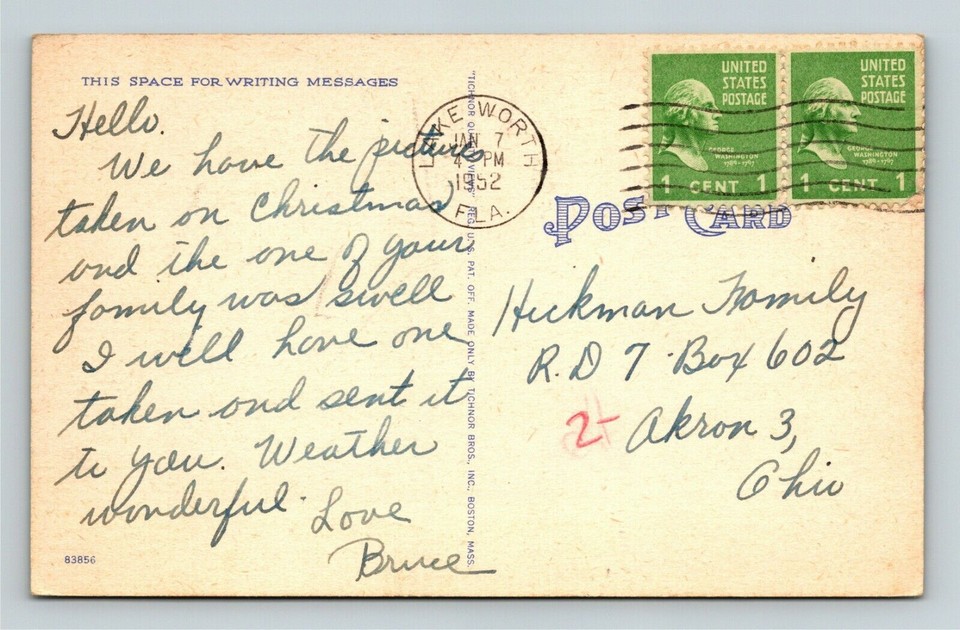 THIS SPACE FOR WRITING MESSAGES
Hello.
We have the pictures
taken on Christmas
and the one of your
family was swell
I will have one
taken and sent it
to you. Weather
wonderful.
Love
Bruce
83856
"TICHNOR QUALITY VIEWS," REG. U. S. PAT. OFF. MADE ONLY BY TICHNOR BROS., INC., BOSTON, MASS.
LAKE WORTH
JAN 7
4 PM
1952
FLA.
UNITED
STATES
POSTAGE
GEORGE
WASHINGTON
1789-1797
1 CENT 1
UNITED
STATES
POSTAGE
GEORGE
WASHINGTON
1789-1797
1 CENT 1
POST CARD
Hickman Family
R.D 7 Box 602
Akron 3,
Ohio
2